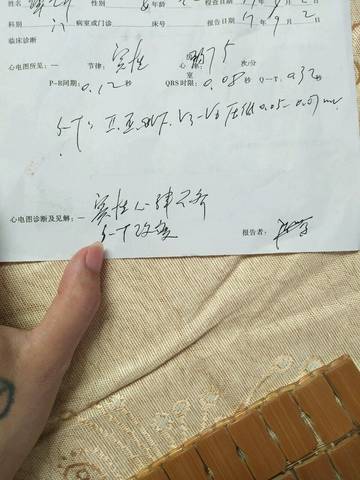 姓名 性别 年龄 检查日期 17年9月2日
科别 门 病室或门诊 床号 报告日期 17年9月2日
临床诊断
心电图所见:一 节律:窦性 心室率:75 次/分
P-R间期:0.12秒 QRS时限:0.08秒 Q-T:0.32秒
S-T:II、III、aVF、V3-V6压低0.05-0.07mv
心电图诊断及见解:一 窦性心律不齐
S-T改变
报告者: